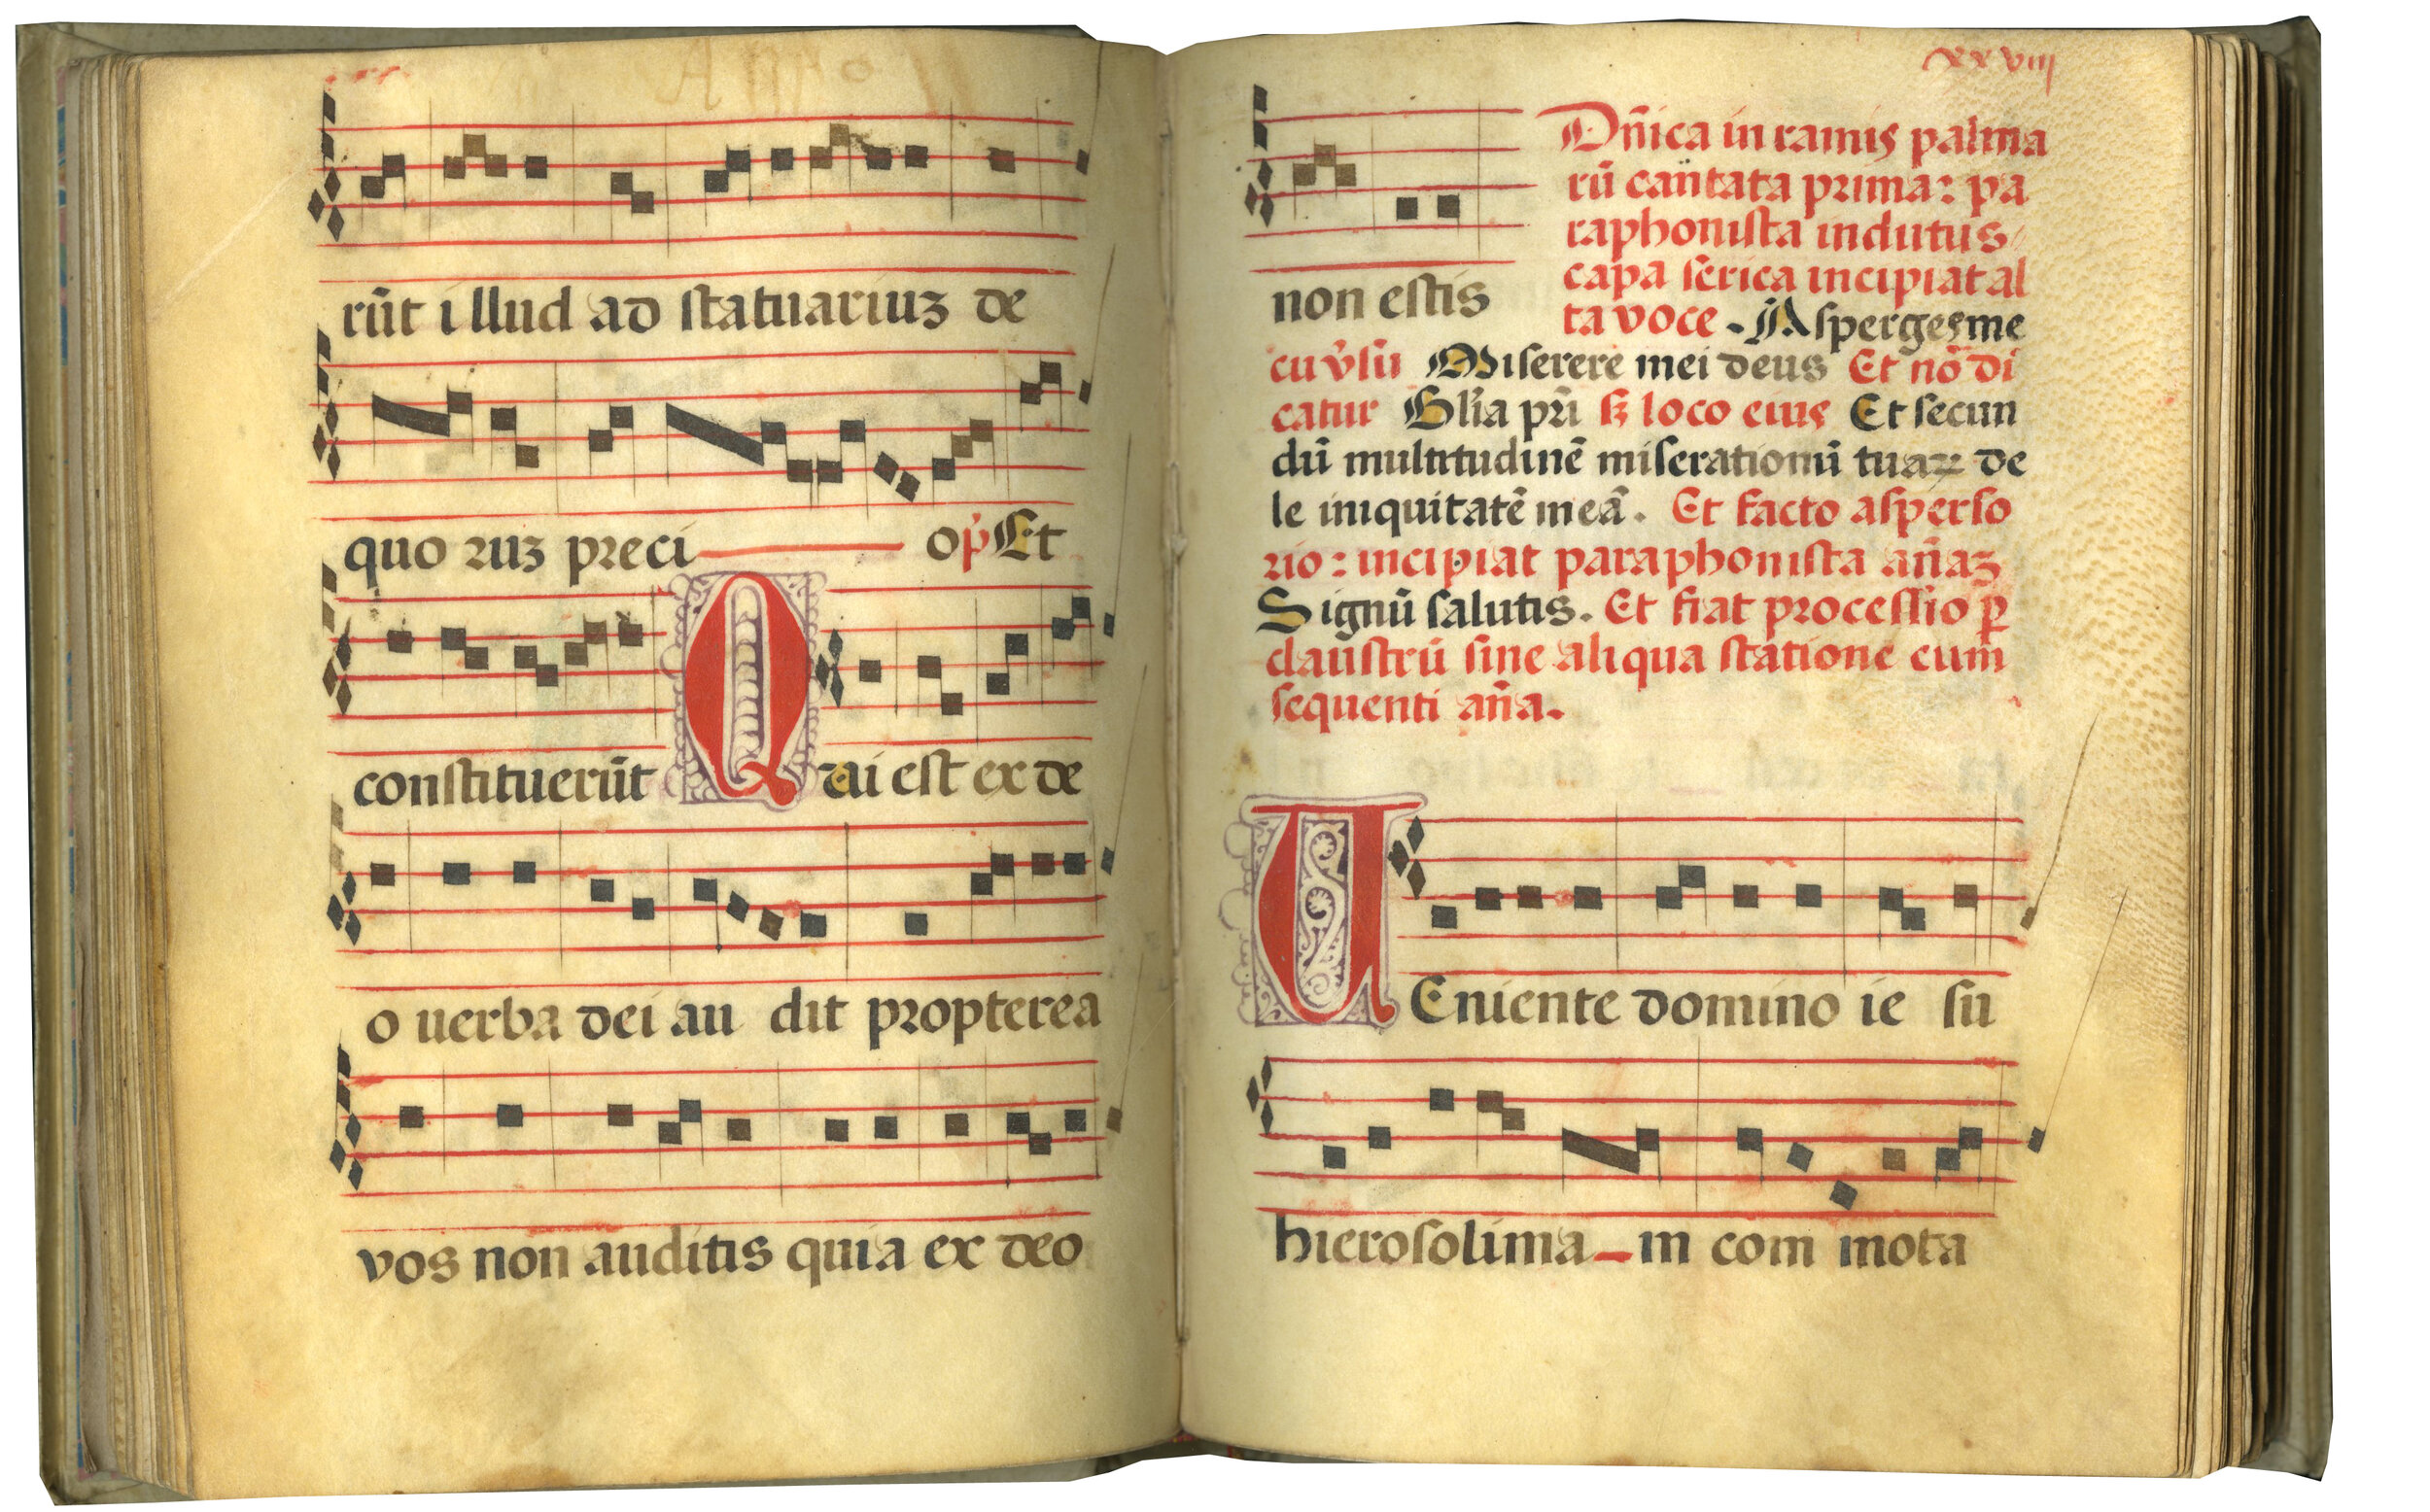 Anno
rūt illud ad statuariuʒ de
quo ruʒ preci op̄ Et
constituerūt Qui est ex de
o uerba dei au dit propterea
vos non auditis quia ex deo
xxviij
non estis
Dn̄ica in ramis palma
rū cantata prima: pa
raphonista indutus
capa serica incipiat al
ta voce. Asperges me
cū v̄sū Miserere mei deus Et nō di
catur Gl̄ia pr̄i sʒ loco eius Et secun
dū multitudinē miserationū tuaꝝ de
le iniquitatē meā. Et facto asperso
rio: incipiat paraphonista an̄aʒ
Signū salutis. Et fiat processio ꝑ
claustrū sine aliqua statione cum
sequenti an̄a.
UEniente domino ie su
hierosolima m com mota